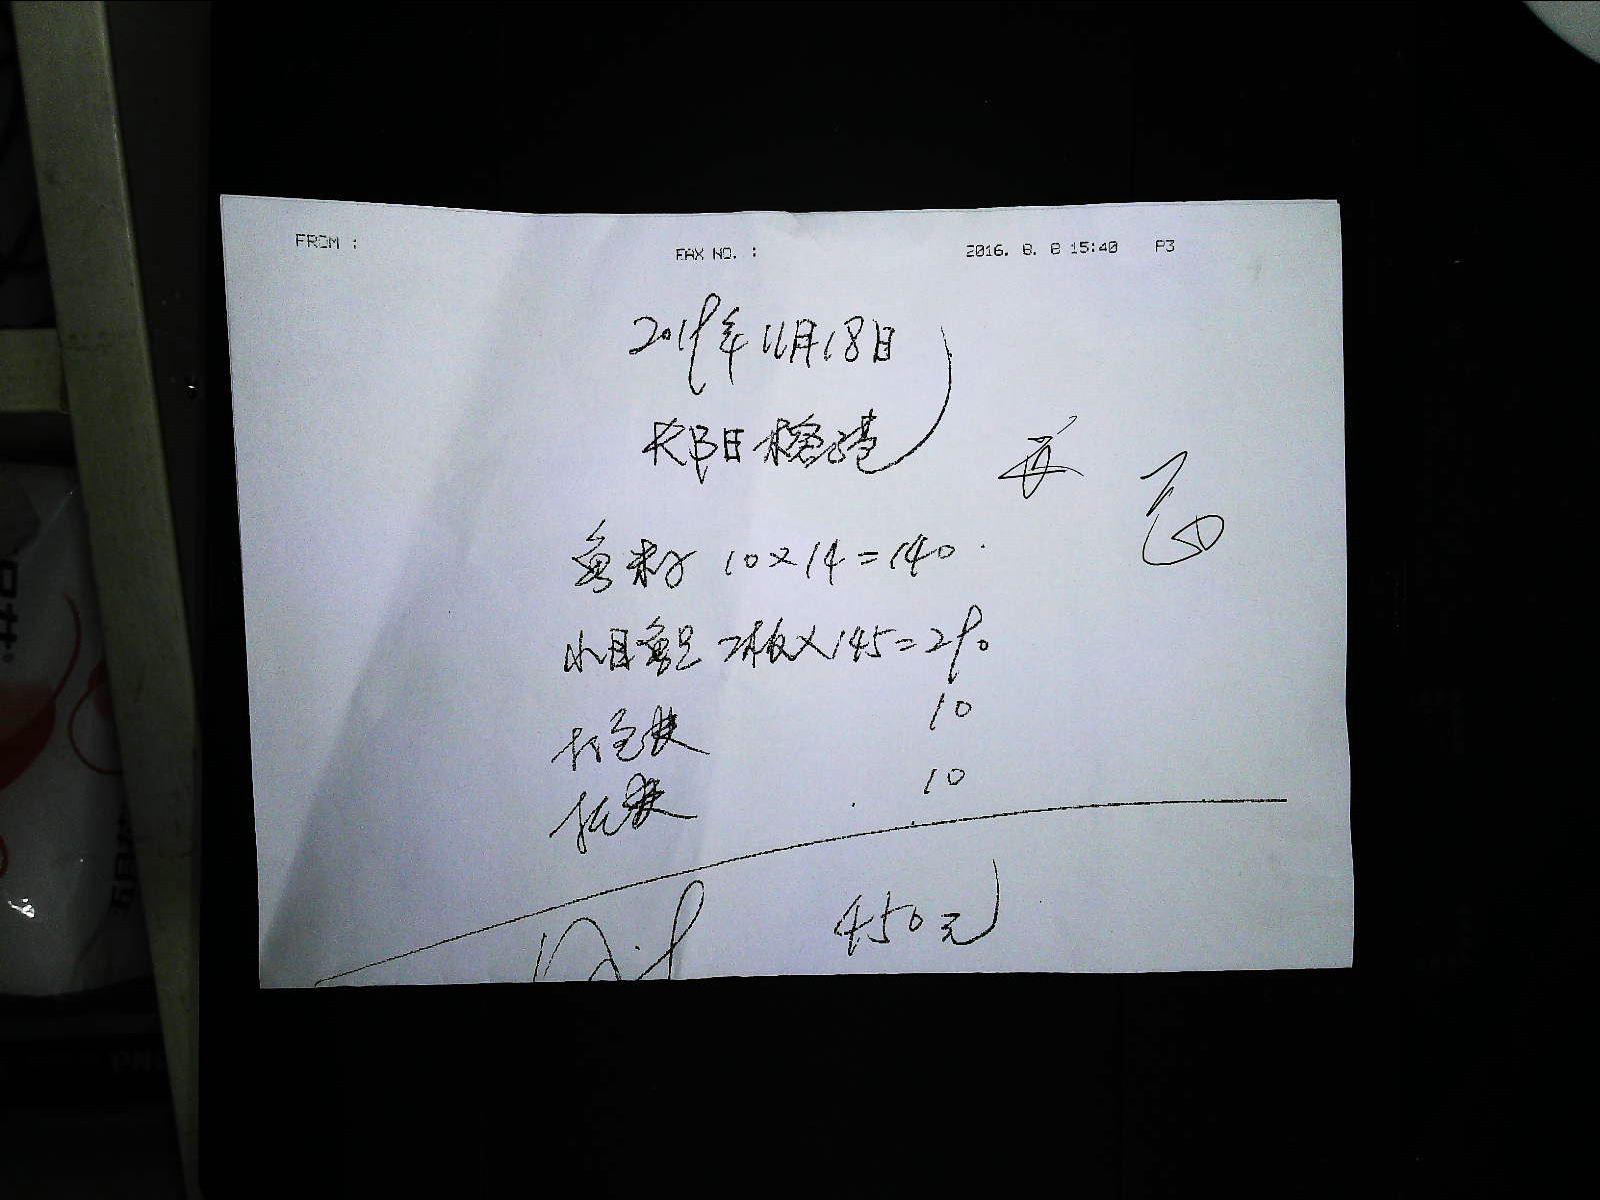 FROM :
FAX NO. :
2016. 8. 8 15:40 P3
2019年11月18日
长阳榕港
鱼籽 10×14=140
小目鱼足 2板×145=290
打包费 10
托费 10
450元